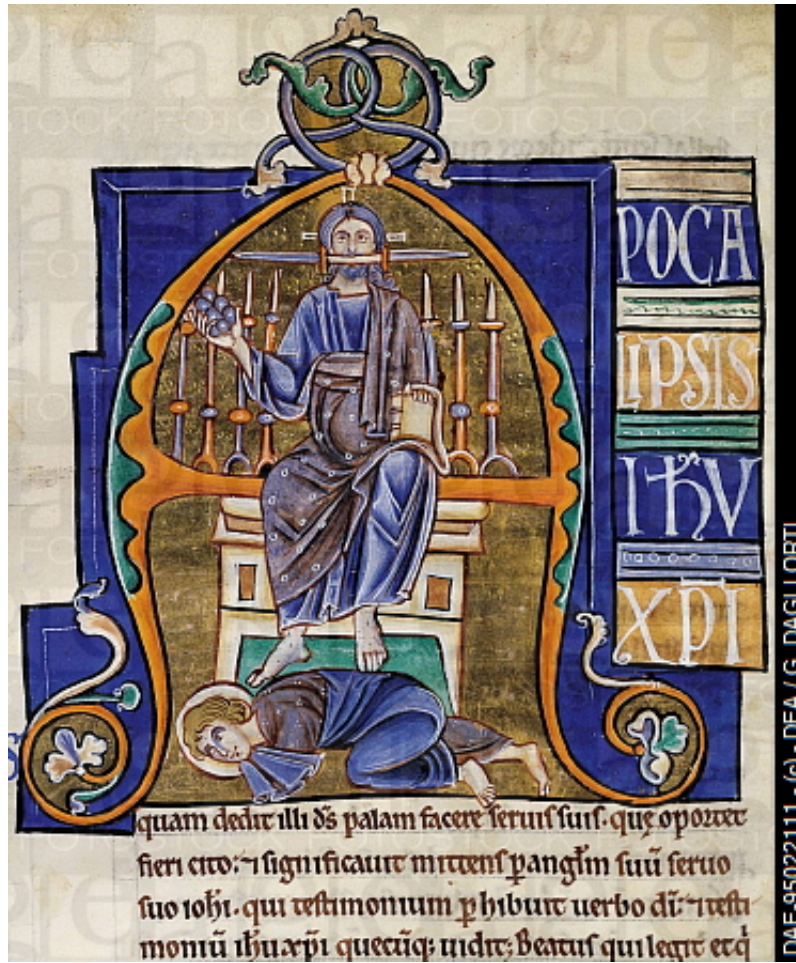 A
POCA
LIPSIS
IħV
XP̅I
quam dedit illi d̅s palam facere seruis suis. quę oportet
fieri cito: ⁊ significauit mittens p angl̅m suū seruo
suo ioh̅i. qui testimonium p hibuit uerbo dī: ⁊ testi
moniū ih̅u xp̅i quecūq; uidit; Beatus qui legit et q
DAE-95022111 - (c) - DEA / G. DAGLI ORTI